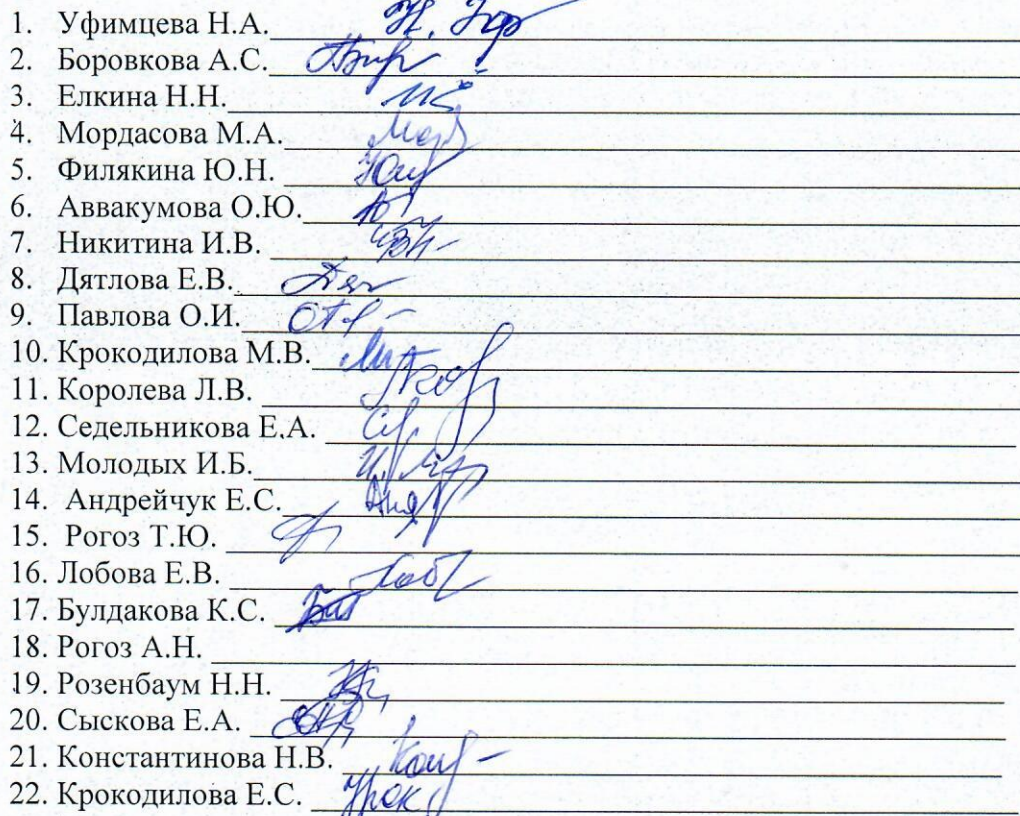 1. Уфимцева Н.А.
2. Боровкова А.С.
3. Елкина Н.Н.
4. Мордасова М.А.
5. Филякина Ю.Н.
6. Аввакумова О.Ю.
7. Никитина И.В.
8. Дятлова Е.В.
9. Павлова О.И.
10. Крокодилова М.В.
11. Королева Л.В.
12. Седельникова Е.А.
13. Молодых И.Б.
14. Андрейчук Е.С.
15. Рогоз Т.Ю.
16. Лобова Е.В.
17. Булдакова К.С.
18. Рогоз А.Н.
19. Розенбаум Н.Н.
20. Сыскова Е.А.
21. Константинова Н.В.
22. Крокодилова Е.С.